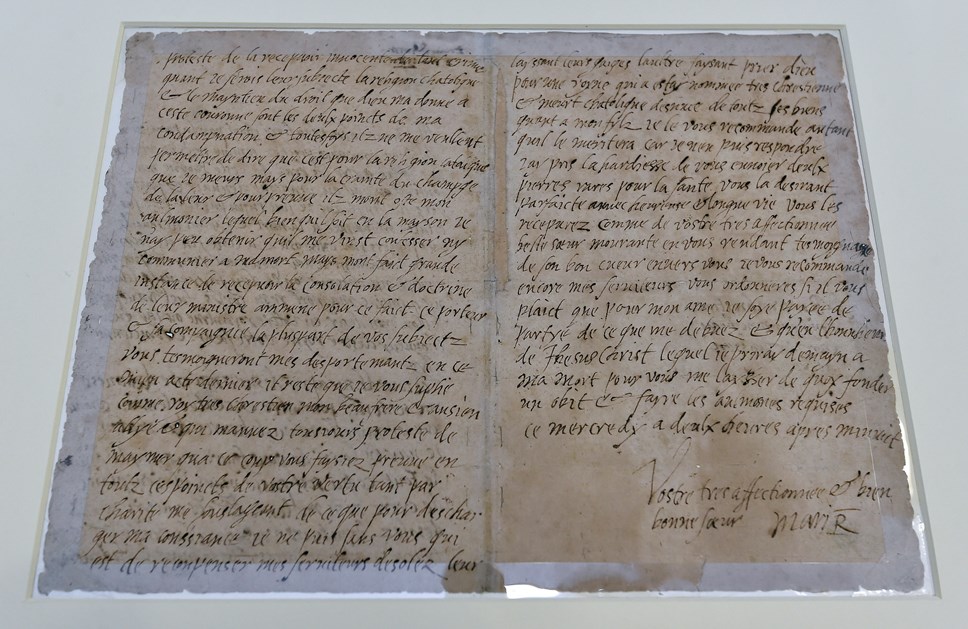 proteste de la recepvoir innocente de tout crime
quant je serois leur subiecte la religion chatolique
& le mayntien du droit que dieu ma donné a
ceste couronne sont les deulx poincts de ma
condampnation & toutesfoys ilz ne me veullent
permettre de dire que cest pour la religion catolique
que je meurs mays pour la crainte du champge
de la leur & pour preuve ilz mont osté mon
aulmonier lequel bien quil soit en la mayson je
nay peu obtenir quil me vinst confesser ny
communier a ma mort mays mont fait grande
instance de recepvoir la consolation & doctrine
de leur ministre ammené pour ce fait ce porteur
& sa compaignie la pluspart de vos subiectz
vous tesmoigneront mes desportemantz en ce
mien acte dernier il reste que je vous suplie
comme roy tres chrestien mon beau frere & ansien
allyé & qui mavvez tousiours protesté de
maymer qua ce coup vous faysiez preuve en
toutz ces poincts de vostre vertu tant par
charité me souslageant de ce que pour deschar
ger ma conssiance je ne puis sans vous qui
est de recompenser mes serviteurs desolez leur
layssant leurs gages laultre faysant prier dieu
pour une royne qui a esté nommée tres chrestienne
& meurt chatolique desnuee de toutz ses biens
quant a mon fylz je le vous recommande autant
quil le meritera car je nen puis respondre
jay pris la hardiesse de vous envoier deulx
pierres rares pour la santé vous la desirant
parfaicte avvec heureuse & longue vie vous les
recepvrez comme de vostre tres affectionnee
belle sœur mourante en vous rendant tesmoygnage
de son bon cueur envers vous je vous recommande
encore mes serviteurs vous ordonneres si il vous
plaict que pour mon ame je soye payée de
partye de ce que me debvez & quen lhonneur
de Jhesus Christ lequel je priray demayn a
ma mort pour vous me laysser de quoy fonder
un obit & fayre les aulmones requises
ce mercredy a deulx heures apres minuict
Vostre tres affectionnee & bien
bonne sœur Mari R